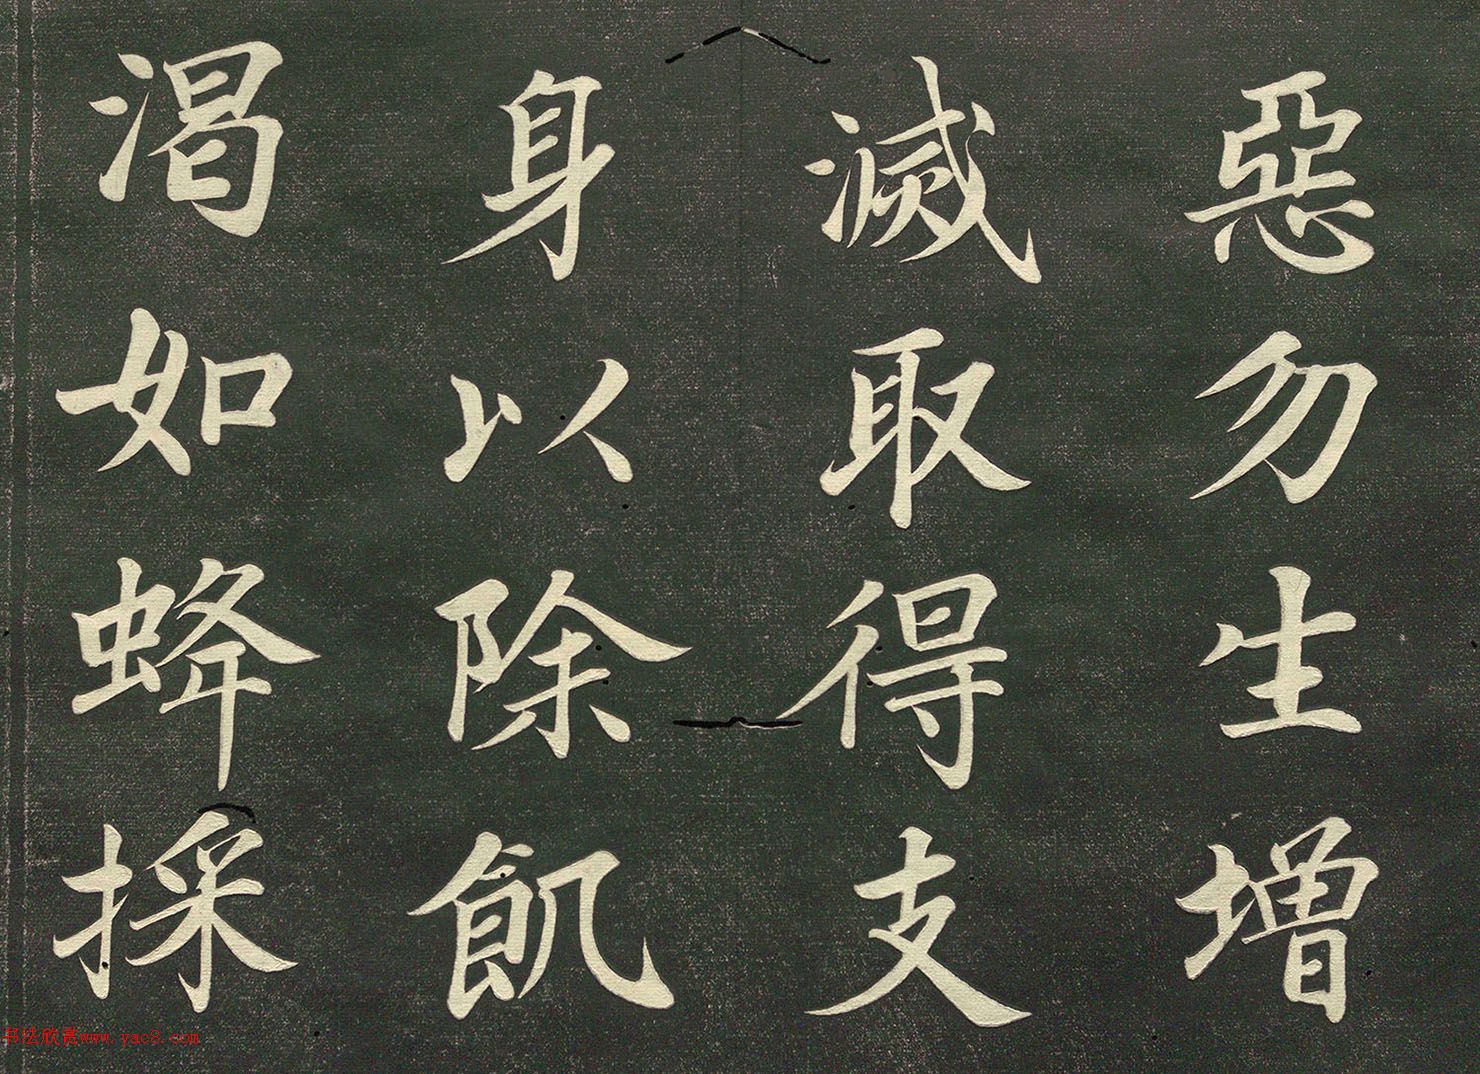 惡勿生增
滅取得支
身以除飢
渴如蜂採
书法欣赏www.yac8.com